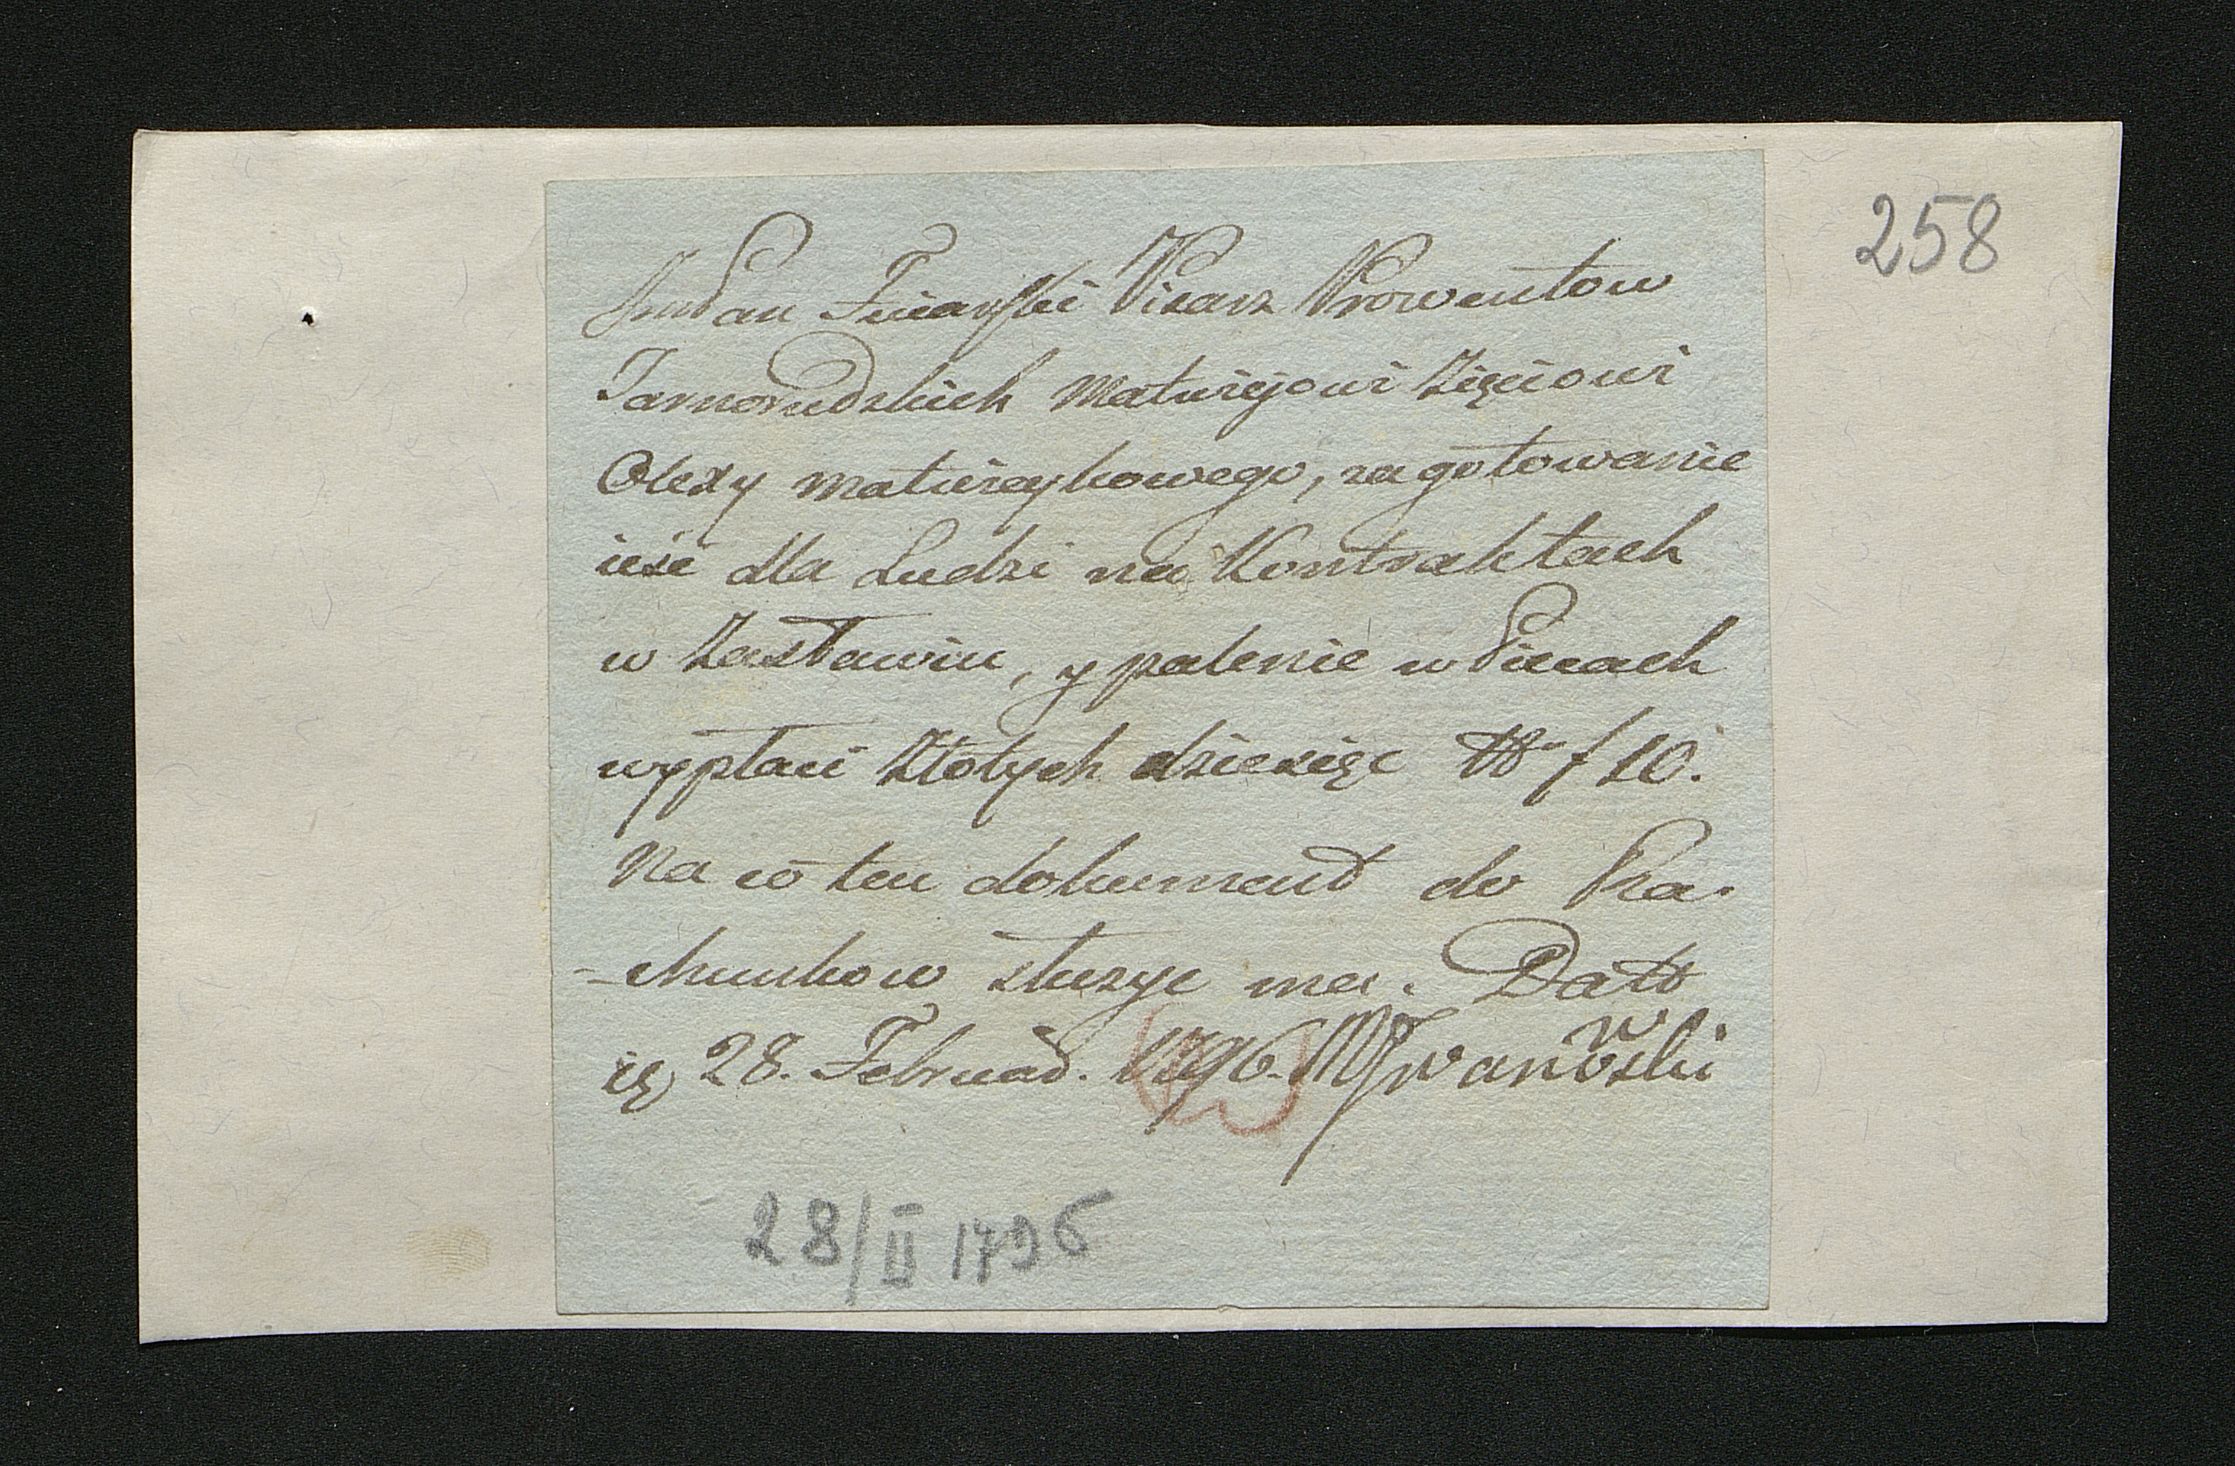 258
Jmć Pan Finarski Pisarz Prowentow
Tarnorudzkich Matwiejowi Zięciowi
Olexy Matwieykowego, za gotowanie
ieść dla Ludzi na Kontraktach
w Zasławiu, y palenie w Piecach
wypłaci Złotych dziesięć N° f 10.
Na co ten dokument do Ra-
-chunkow służyć ma. Datt
ię 28. Februar. 1796. MIwanowski
28/II 1796